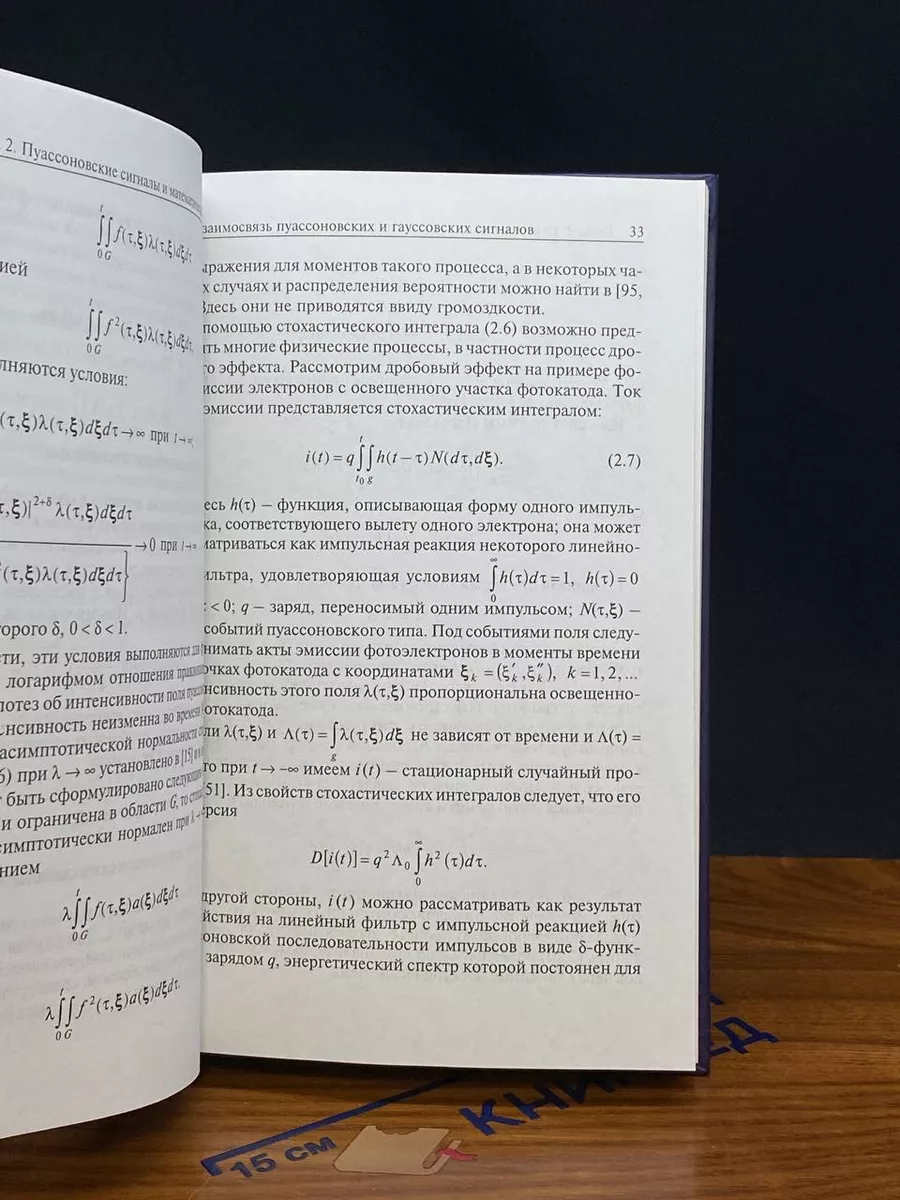 2. Пуассоновские сигналы и
t
∫∫f(τ,ξ)λ(τ,ξ)dξdτ
0 G
t
∫∫f²(τ,ξ)λ(τ,ξ)dξdτ,
0 G
условия:
(τ,ξ)λ(τ,ξ)dξdτ→∞ при t→∞,
τ,ξ)|²⁺δ λ(τ,ξ)dξdτ
→0 при t→∞
(τ,ξ)λ(τ,ξ)dξdτ}
δ, 0<δ<1.
эти условия выполняются для
логарифмом отношения
об интенсивности поля
неизменна во времени
асимптотической нормальности
при λ→∞ установлено в [15] и
быть сформулировано следующим
и ограничена в области G, то
нормален при λ→
t
λ∫∫f(τ,ξ)a(ξ)dξdτ
0 G
t
λ∫∫f²(τ,ξ)a(ξ)dξdτ.
0 G
заимосвязь пуассоновских и гауссовских сигналов 33
ыражения для моментов такого процесса, а в некоторых ча-
х случаях и распределения вероятности можно найти в [95,
Здесь они не приводятся ввиду громоздкости.
помощью стохастического интеграла (2.6) возможно пред-
ть многие физические процессы, в частности процесс дро-
го эффекта. Рассмотрим дробовый эффект на примере фо-
иссии электронов с освещенного участка фотокатода. Ток
эмиссии представляется стохастическим интегралом:
t
i(t)=q∫∫h(t−τ)N(dτ,dξ). (2.7)
t₀ g
есь h(τ) — функция, описывающая форму одного импуль-
ка, соответствующего вылету одного электрона; она может
матриваться как импульсная реакция некоторого линейно-
∞
ильтра, удовлетворяющая условиям ∫h(τ)dτ=1, h(τ)=0
0
<0; q — заряд, переносимый одним импульсом; N(τ,ξ) —
событий пуассоновского типа. Под событиями поля следу-
нимать акты эмиссии фотоэлектронов в моменты времени
очках фотокатода с координатами ξₖ=(ξ′ₖ,ξ″ₖ), k=1,2,...
нсивность этого поля λ(τ,ξ) пропорциональна освещенно-
отокатода.
ли λ(τ,ξ) и Λ(τ)=∫λ(τ,ξ)dξ не зависят от времени и Λ(τ)=
g
то при t→−∞ имеем i(t) — стационарный случайный про-
51]. Из свойств стохастических интегралов следует, что его
ерсия
∞
D[i(t)]=q²Λ₀∫h²(τ)dτ.
0
другой стороны, i(t) можно рассматривать как результат
йствия на линейный фильтр с импульсной реакцией h(τ)
оновской последовательности импульсов в виде δ-функ-
зарядом q, энергетический спектр которой постоянен для
15 СМ